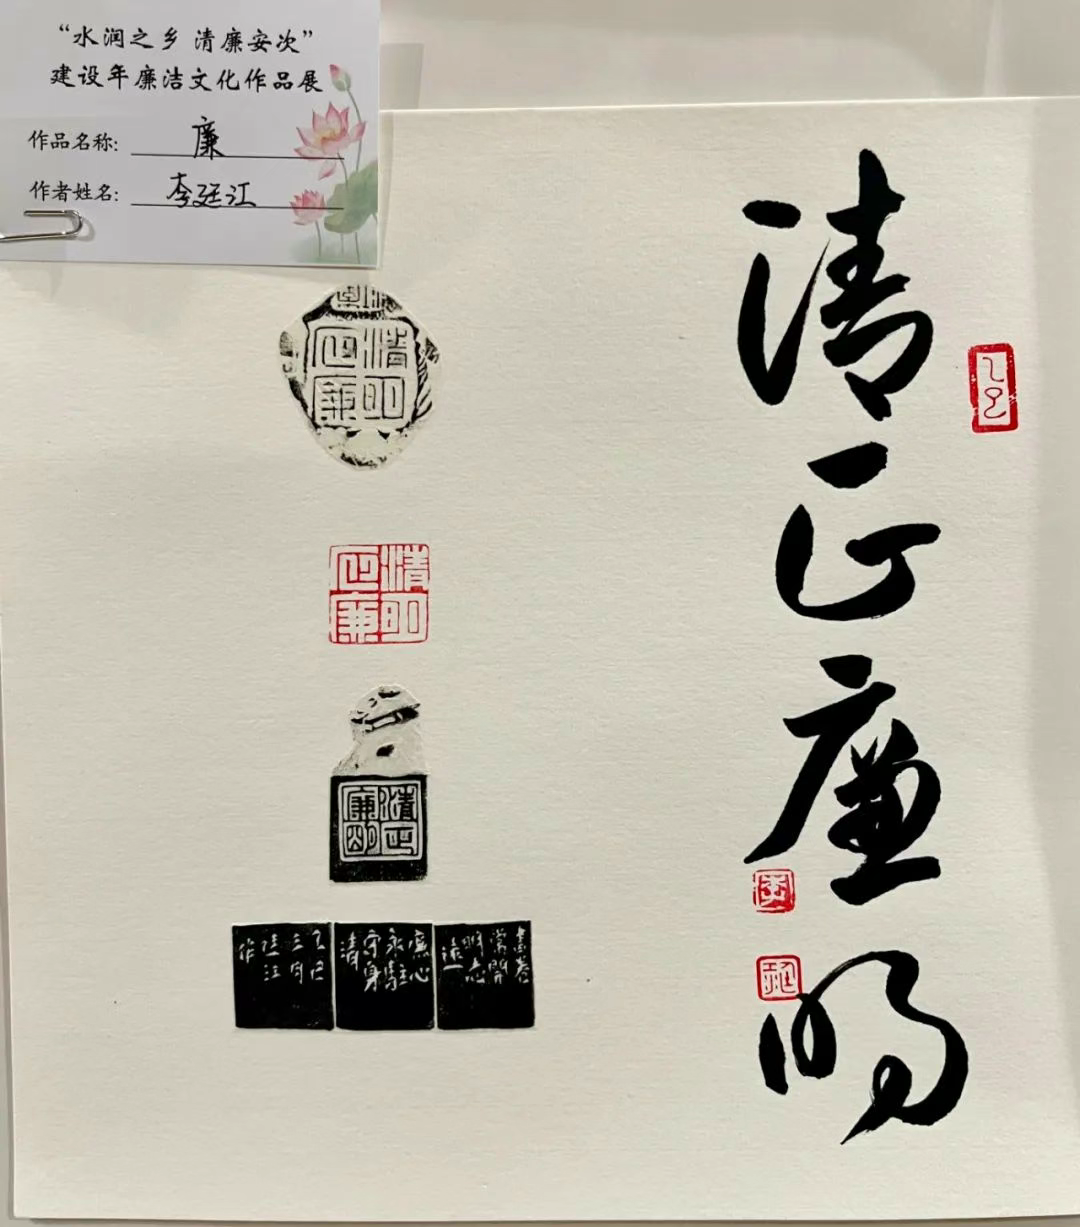 “水润之乡 清廉安次”
建设年廉洁文化作品展
作品名称: 廉
作者姓名: 李廷江
清正廉明
乙巳
清正廉明
清正廉明
清正廉明
書卷
常開
明志
遠
廉心
永駐
守身
清
乙巳
三月
廷江
作